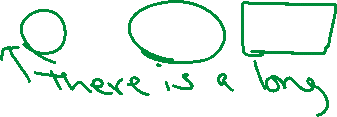 there is a long